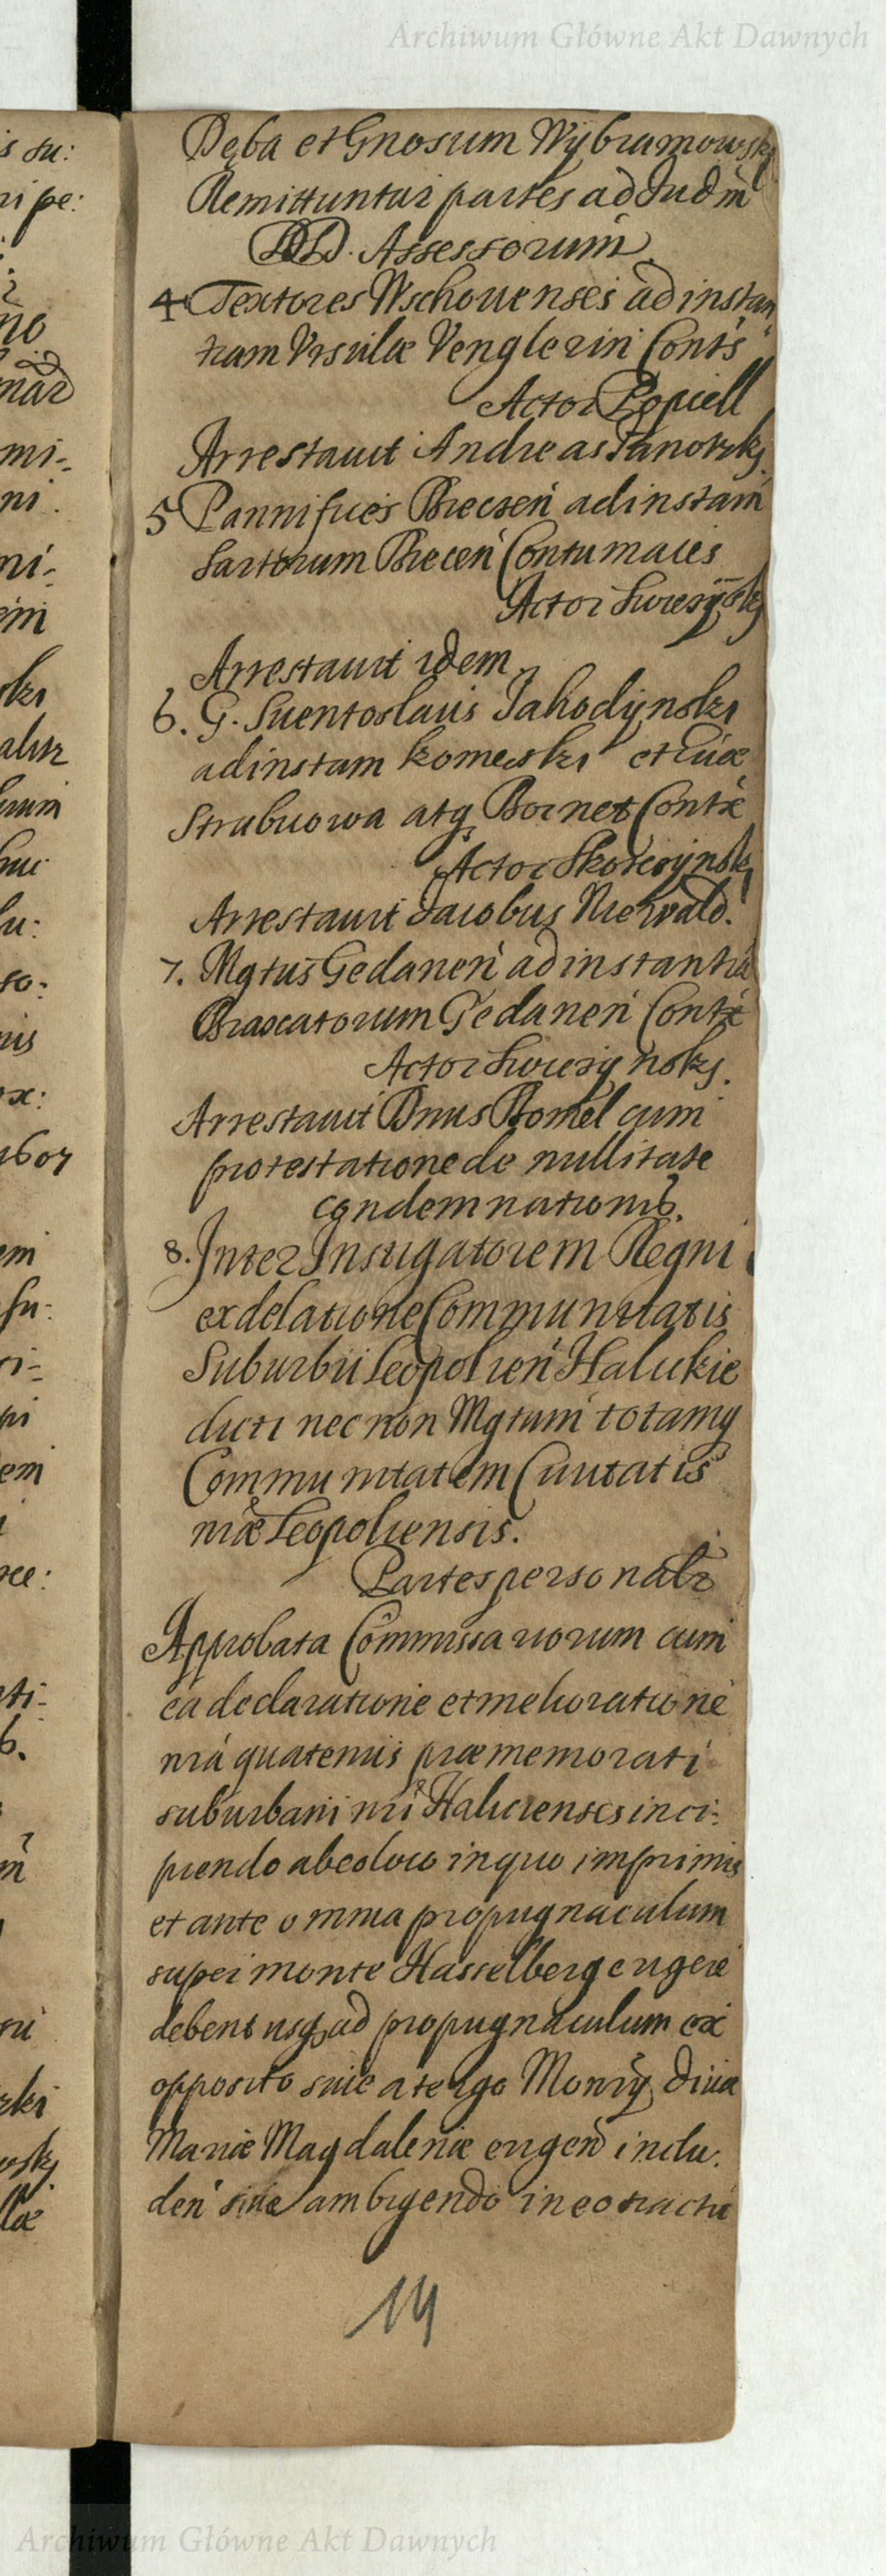 Archiwum Główne Akt Dawnych
Dęba et Gnosum Wybramowsky
Remittuntur partes ad Judm
DD. Assessorum
4 Textores Wschouenses ad instan
tiam Vrsulæ Venglerin Conts
Actor Popiell
Arrestauit Andreas Janotzky
5 Pannifices Brecsen ad instam
Sartorum Brecen Contumaces
Actor Swiesynsky
Arrestauit idem
6. G. Suentoslaus Jahodynski
ad instam et Euæ
Strubuowa atq Bornet Contx
Actor Skorczynsky
Arrestauit Jacobus Nierwald.
7. Mgtus Gedanen ad instantia
Braxatorum Gedanen Contx
Actor Swiesynsky.
Arrestauit Dnus Romel cum
protestatione de nullitate
condemnationis.
8. Inter Instigatorem Regni
ex delatione Communitatis
Suburbii Leopolien Halickie
dicti nec non Mgtum totamq
Communitatem Ciuitatis
nræ Leopoliensis.
Partes personalr
Approbata Commissariorum cum
ea declaratione et melioratione
nra quatenus præmemorati
suburbani nri Halicienses inci-
piendo ab eo loco in quo imprimis
et ante omnia propugnaculum
super monte Hasselberg erigere
debent usq ad propugnaculum ex
opposito siue a tergo Monry Diuæ
Mariæ Magdalenæ erigen inclu.
den siue ambigendo in eo tractu
14
is su:
ri pe:
no
mar
mi-
ni.
ni-
em
ski
alitr
hui
lu:
so-
nis
ox:
1607
em
su:
ri-
pi
em
ree:
ti-
6.
ru
rski
osky
læ
Archiwum Główne Akt Dawnych